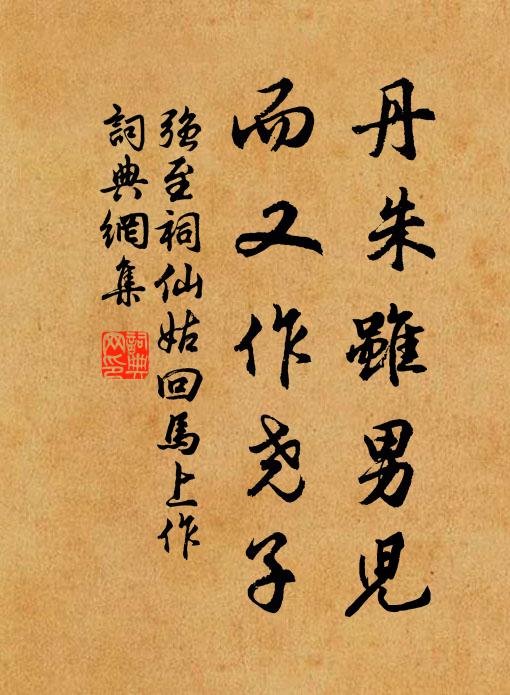 丹朱雖男兒
而又作尧子
强至祠仙姑回馬上作
詞典網集
詞典网印